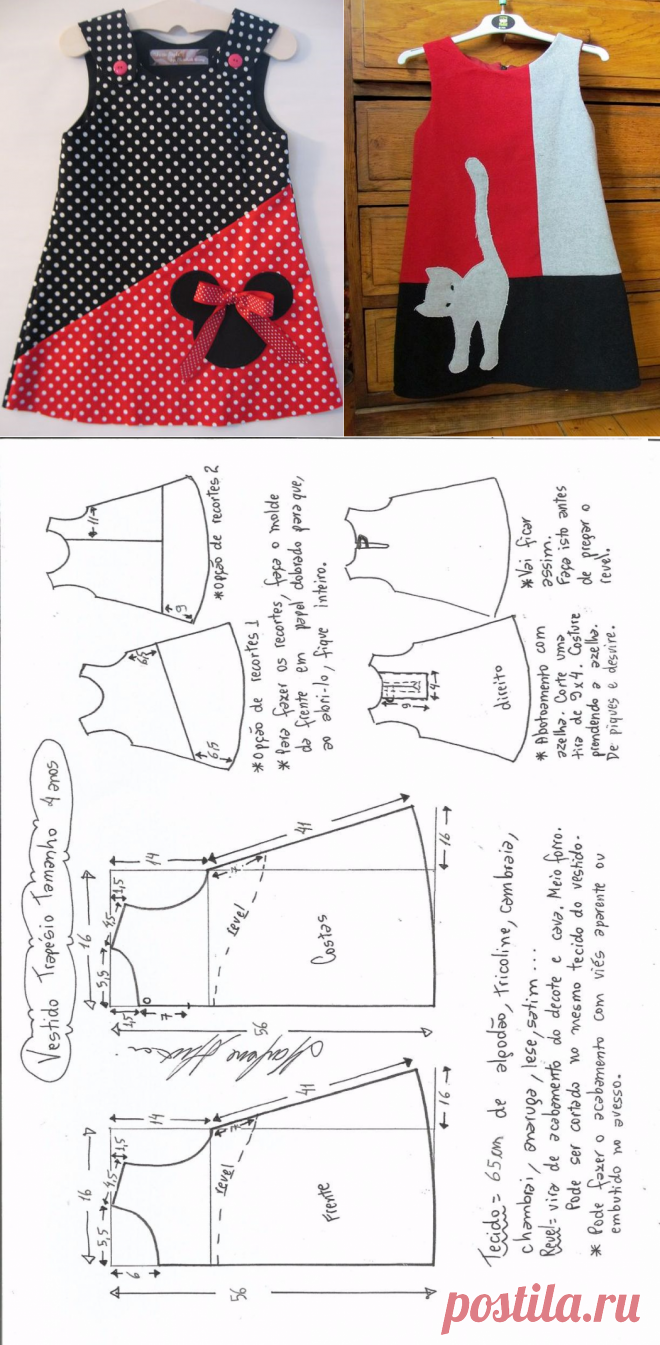 Vestido Trapésio Tamanho 4 anos
*Opção de recortes 2
11
9
*Opção de recortes 1
*Para fazer os recortes, faça o molde
da frente em papel dobrado para que,
ao abri-lo, fique inteiro.
*Vai ficar
assim.
Faça isto antes
de pregar o
revel.
*Abotoamento com
azelha. Corte uma
tira de 9x4. Costure
prendendo a azelha.
De piques e desvire.
direito
9
4
14
41
16
16
1,5
4,5
5,5
1,5
7
7
revel
Costas
56
14
41
16
16
1,5
4,5
5,5
6
7
revel
Frente
56
Tecido = 65cm de algodão, tricoline, cambraia,
chambrai, anarruga, lese, setim...
Revel = vira de acabamento do decote e cava. Meio forro.
Pode ser cortado no mesmo tecido do vestido.
* Pode fazer o acabamento com viés aparente ou
embutido no avesso.
postila.ru